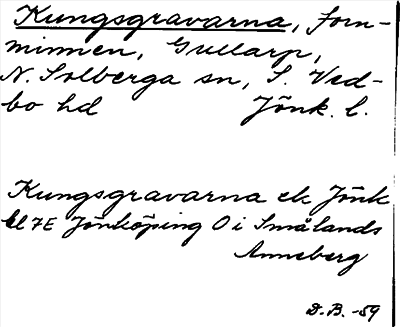 Kungsgravarna, forn-
minnen, Gullarp,
N. Solberga sn, S. Ved-
bo hd Jönk. l.
Kungsgravarna ek Jönk
bl 7E Jönköping O i Smålands
Anneberg
D.B. -59